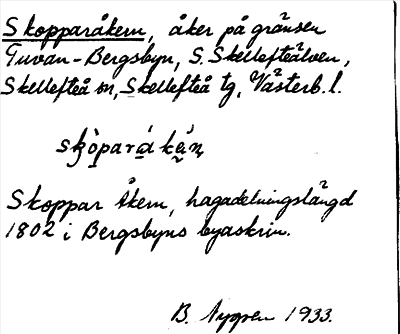 Skopparåkern, åker på gränsen
Tuvan-Bergsbyn, S. Skellefteälven,
Skellefteå sn, Skellefteå tg, Västerb. l.
Skoppar Åkern, hagadelningslängd
1802 i Bergsbyns byaskrin.
B. Nygren 1933.